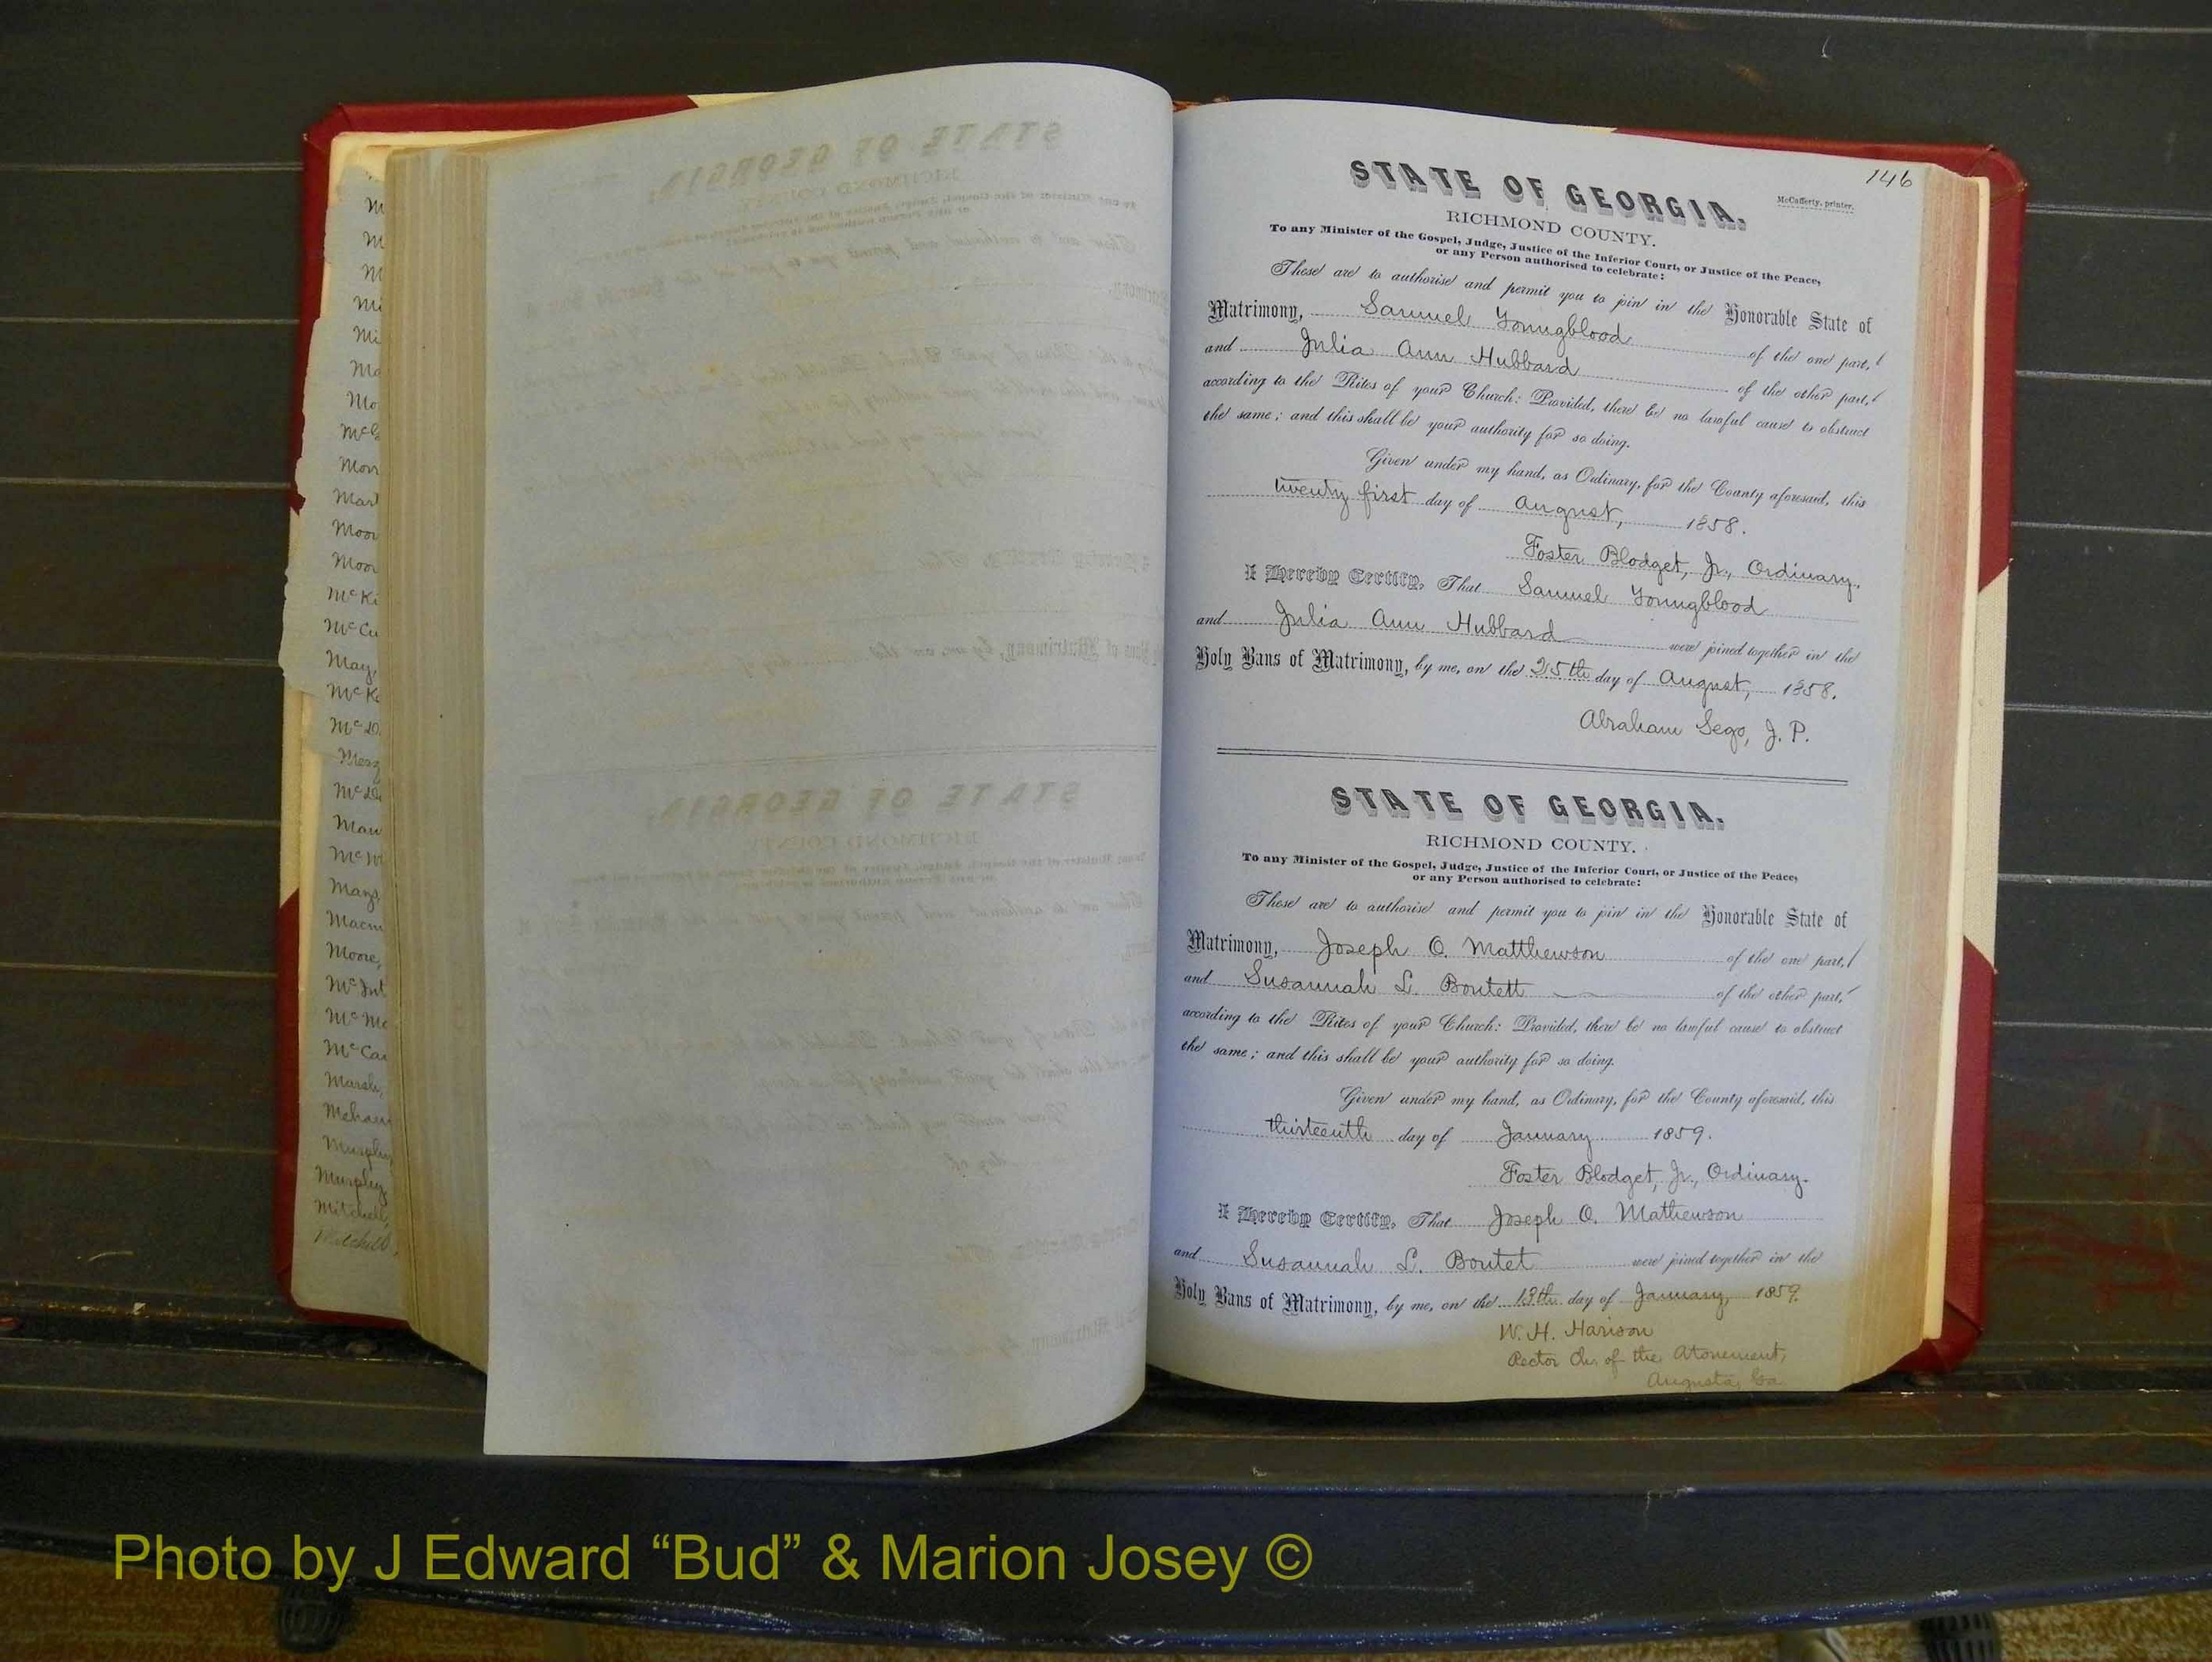 M
M
M
Mi
Mi
Mo
Mo
McG
Morr
Mart
Moor
Moor
McKi
McCu
May,
McK
McD
McDu
Mau
Mays
Macm
Moore,
McInt
McMc
McCar
Marsh,
Murphy
Murphy
Mitchell,
Mitchell,
146
STATE OF GEORGIA.
McCafferty, printer.
RICHMOND COUNTY.
To any Minister of the Gospel, Judge, Justice of the Inferior Court, or Justice of the Peace,
or any Person authorised to celebrate:
These are to authorise and permit you to join in the Honorable State of
Matrimony, Samuel Youngblood of the one part,
and Julia Ann Hubbard of the other part,
according to the Rites of your Church: Provided, there be no lawful cause to obstruct
the same; and this shall be your authority for so doing.
Given under my hand, as Ordinary, for the County aforesaid, this
twenty first day of August, 1858.
Foster Blodget, Jr., Ordinary.
I Hereby Certify, That Samuel Youngblood
and Julia Ann Hubbard were joined together in the
Holy Bans of Matrimony, by me, on the 25th day of August, 1858.
Abraham Sego, J. P.
STATE OF GEORGIA.
RICHMOND COUNTY.
To any Minister of the Gospel, Judge, Justice of the Inferior Court, or Justice of the Peace,
or any Person authorised to celebrate:
These are to authorise and permit you to join in the Honorable State of
Matrimony, Joseph O. Matthewson of the one part,
and Susannah L. Boutett of the other part,
according to the Rites of your Church: Provided, there be no lawful cause to obstruct
the same; and this shall be your authority for so doing.
Given under my hand, as Ordinary, for the County aforesaid, this
thirteenth day of January 1859.
Foster Blodget, Jr., Ordinary.
I Hereby Certify, That Joseph O. Mathewson
and Susannah L. Boutet were joined together in the
Holy Bans of Matrimony, by me, on the 13th day of January, 1859.
W. H. Harison
Rector Ch. of the Atonement,
Augusta, Ga
Photo by J Edward “Bud” & Marion Josey ©